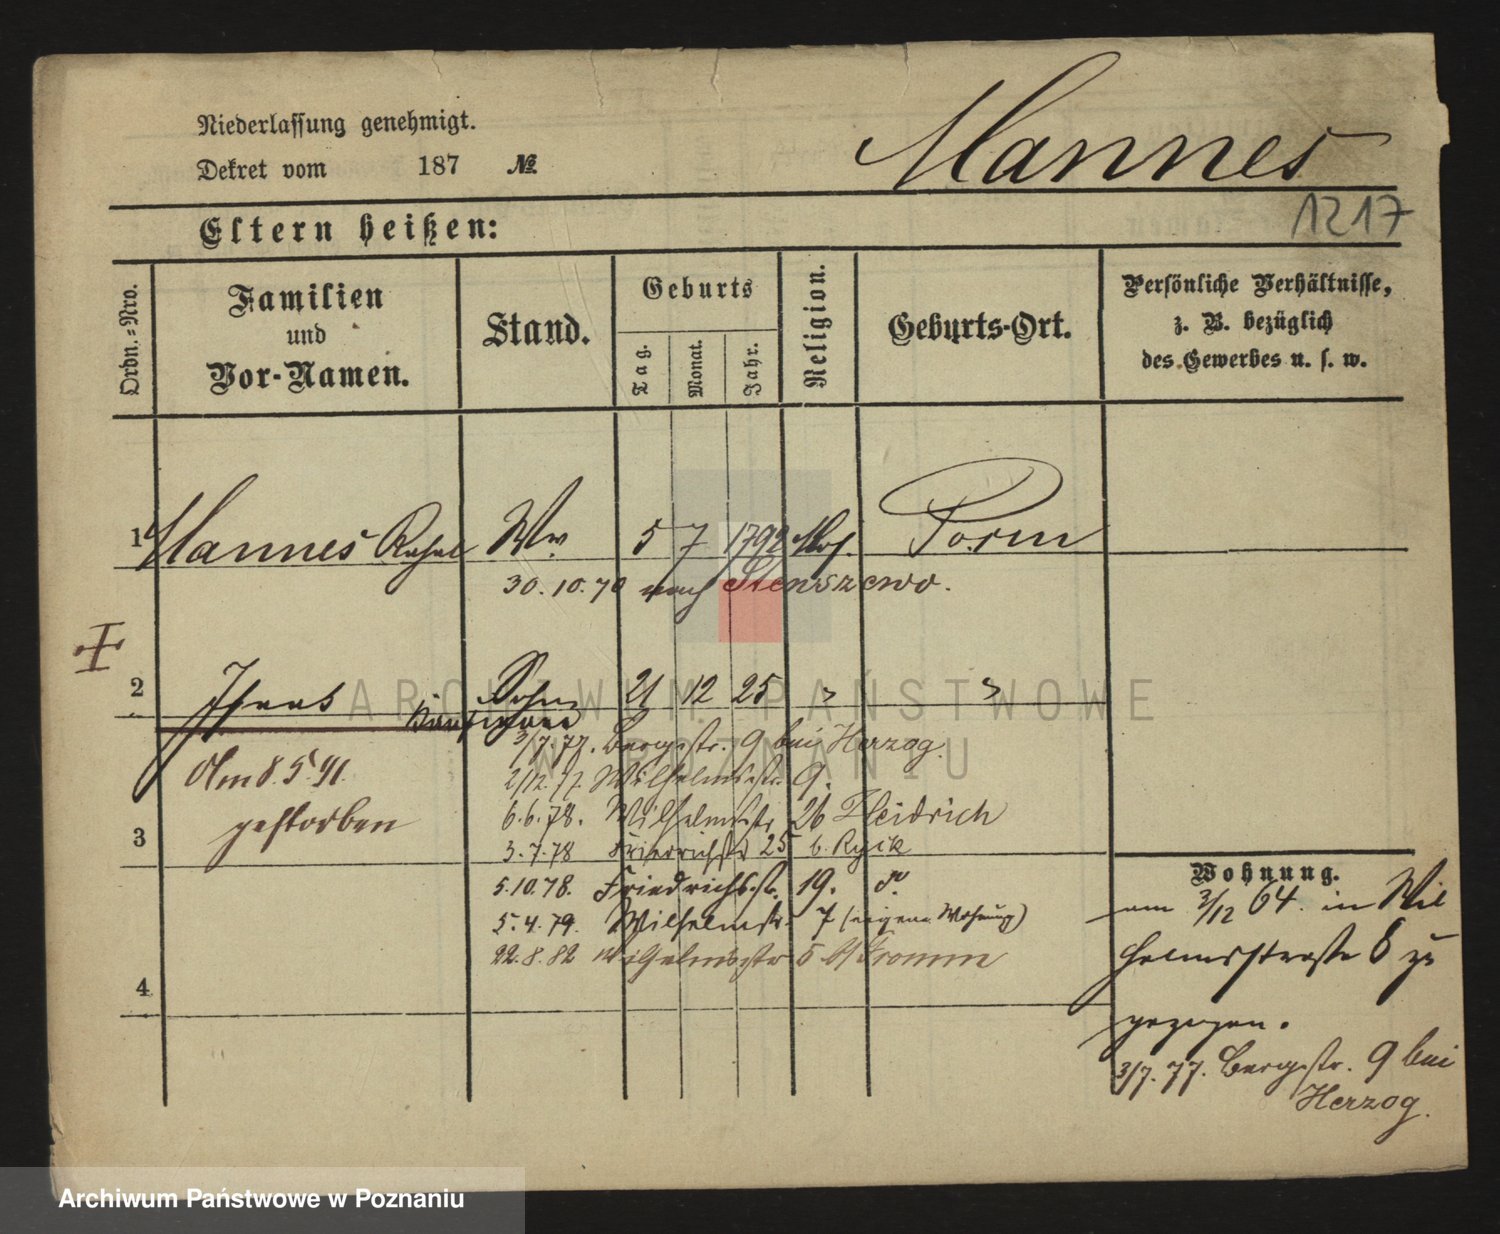 Niederlassung genehmigt.
Dekret vom 187 №
Mannes
1217
Eltern heißen:
Ordn.-Nro.
Familien
und
Vor-Namen.
Stand.
Geburts
Tag.
Monat.
Jahr.
Religion.
Geburts-Ort.
Persönliche Verhältnisse,
z. B. bezüglich
des Gewerbes u. s. w.
1 Mannes Rahel Ww 5 7 1792 Mos. Posen
30.10.70 nach Stenszewo.
2 Sohn 21 12 25 " "
3/7.77. Bergstr. 9 bei Herzog.
Am 8.5.91
gestorben
2/12.77. Wilhelmstr. 9.
6.6.78. Wilhelmstr. 26 Heidrich
3
3.7.78 Friedrichstr 25 b.
5.10.78. Friedrichsstr. 19. do.
5.4.79. Wilhelmstr. 7 (eigene Wohnung)
22.8.82 Wilhelmstr 5
4
Wohnung.
am 3/12 64 in Wil
helmsstraße 8 zu
gezogen.
3/7.77. Bergstr. 9 bei
Herzog.
ARCHIWUM PAŃSTWOWE
W POZNANIU
Archiwum Państwowe w Poznaniu